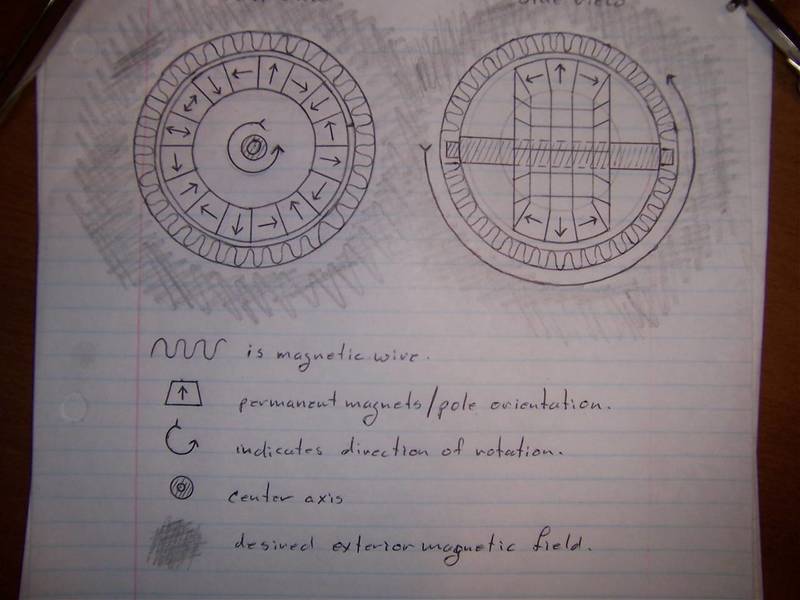 Side View
is magnetic wire.
permanent magnets/pole orientation.
indicates direction of rotation.
center axis
desired exterior magnetic field.